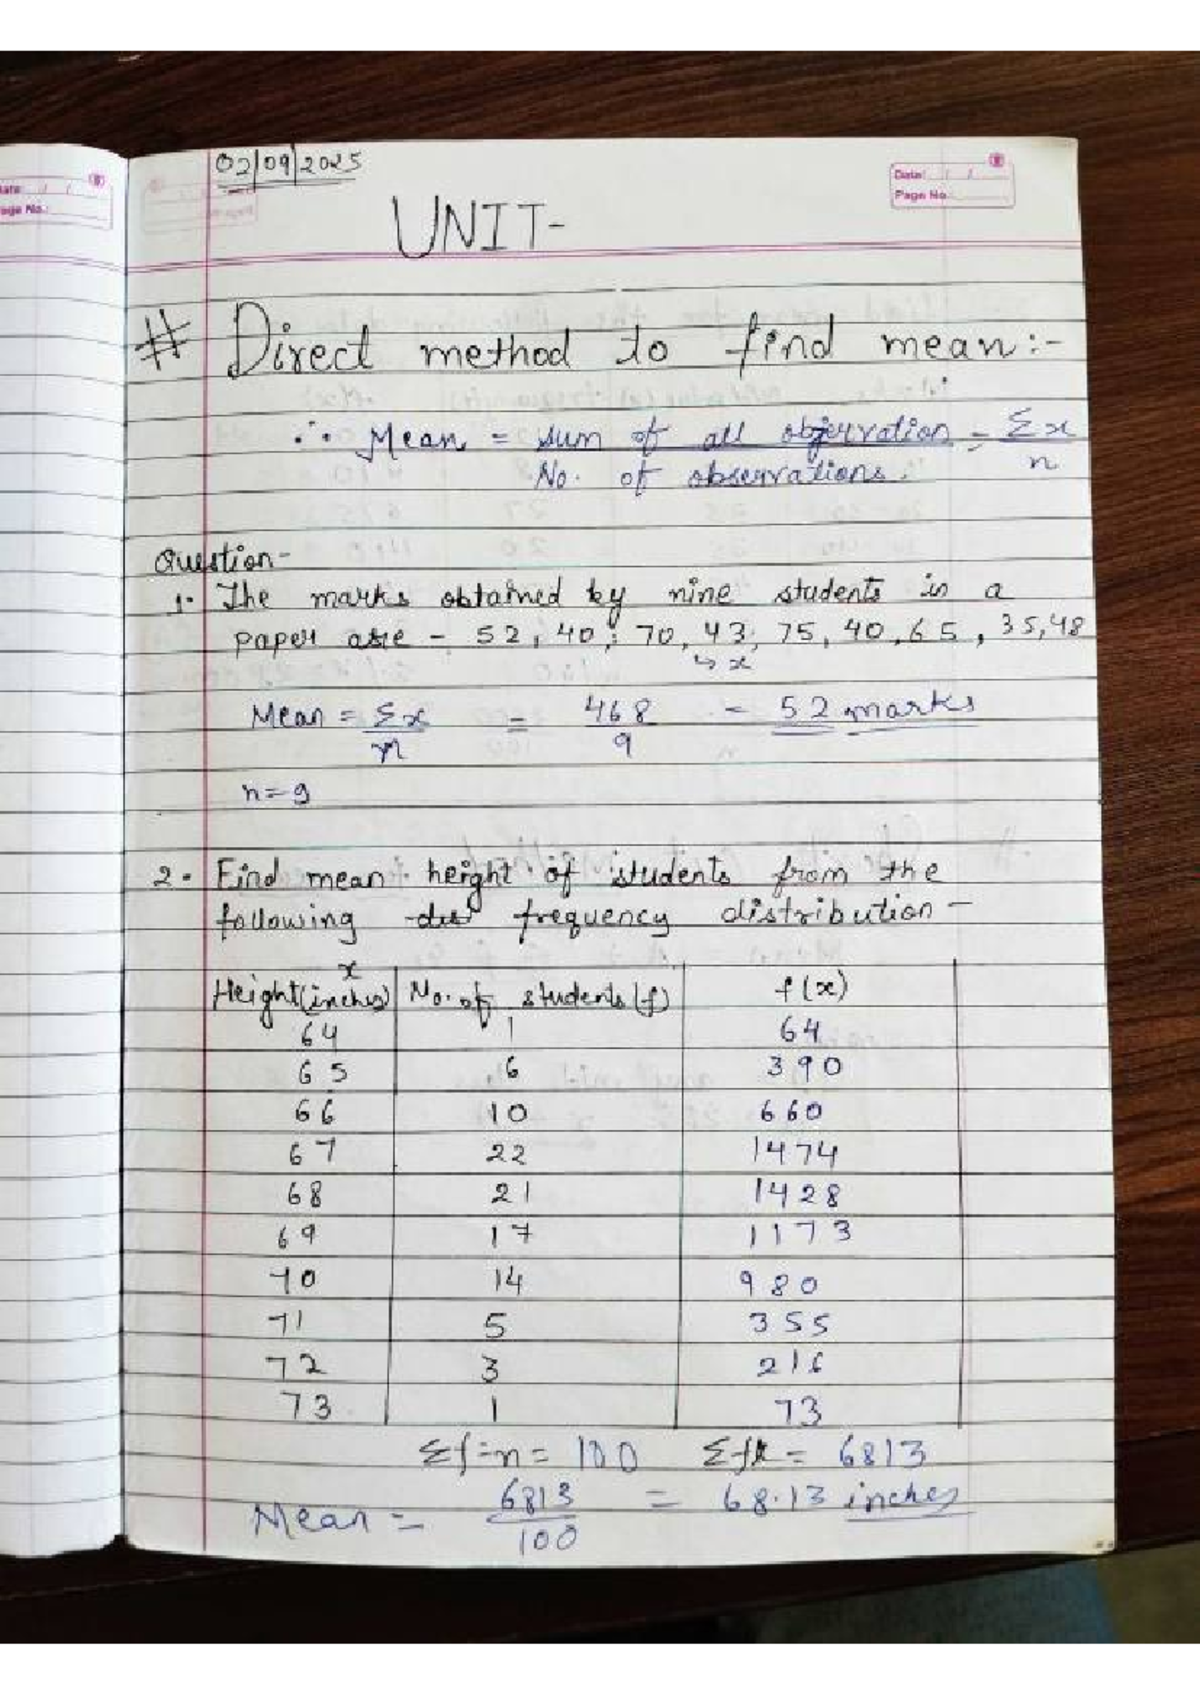 02/09/2025
Date: / /
Page No.
UNIT-
# Direct method to find mean:-
∴ Mean = sum of all objervation = Σx
No. of observations. n
Question-
1. The marks obtained by nine students in a
paper are - 52, 40, 70, 43, 75, 40, 65, 35, 48
↳ x
Mean = Σx = 468 = 52 marks
n 9
n=9
2. Find mean height of students from the
following frequency distribution-
x
Height(inches) No. of students (f) f(x)
64 1 64
65 6 390
66 10 660
67 22 1474
68 21 1428
69 17 1173
70 14 980
71 5 355
72 3 216
73 1 73
Σf=n= 100 Σfx = 6813
Mean = 6813 = 68.13 inches
100